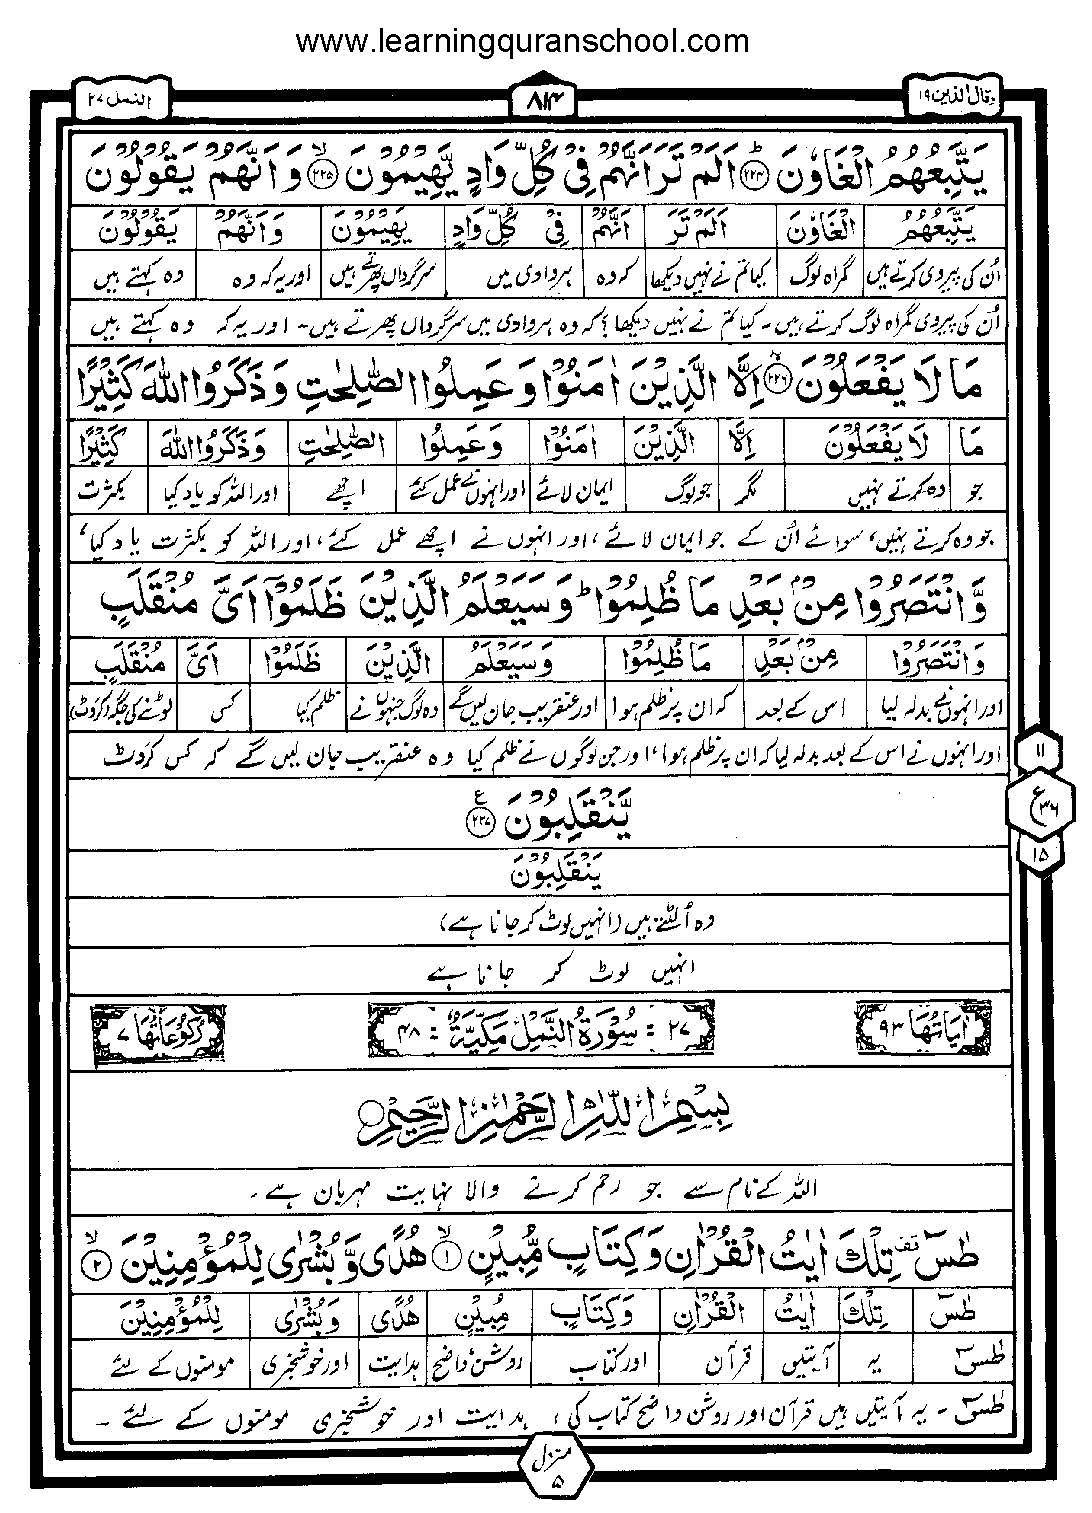 www.learningquranschool.com
وقال الذین ۱۹
۸۱۴
النمل ۲۷
يَتَّبِعُهُمُ الْغَاوٗنَ ۲۲۴ اَلَمْ تَرَ اَنَّهُمْ فِيْ كُلِّ وَادٍ يَّهِيْمُوْنَ ۲۲۵ وَاَنَّهُمْ يَقُوْلُوْنَ
يَتَّبِعُهُمُ الْغَاوٗنَ اَلَمْ تَرَ اَنَّهُمْ فِيْ كُلِّ وَادٍ يَهِيْمُوْنَ وَاَنَّهُمْ يَقُوْلُوْنَ
اُن کی پیروی کرتے ہیں گمراہ لوگ کیا تم نے نہیں دیکھا کہ وہ ہر وادی میں سرگرداں پھرتے ہیں اور یہ کہ وہ وہ کہتے ہیں
اُن کی پیروی گمراہ لوگ کرتے ہیں۔ کیا تم نے نہیں دیکھا؟ کہ وہ ہر وادی میں سرگرداں پھرتے ہیں۔ اور یہ کہ وہ کہتے ہیں
مَا لَا يَفْعَلُوْنَ ۲۲۶ اِلَّا الَّذِيْنَ اٰمَنُوْا وَعَمِلُوا الصّٰلِحٰتِ وَذَكَرُوا اللّٰهَ كَثِيْرًا
مَا لَا يَفْعَلُوْنَ اِلَّا الَّذِيْنَ اٰمَنُوْا وَعَمِلُوا الصّٰلِحٰتِ وَذَكَرُوا اللّٰهَ كَثِيْرًا
جو وہ کرتے نہیں مگر جو لوگ ایمان لائے اور انہوں نے عمل کئے اچھے اور اللہ کو یاد کیا بکثرت
جو وہ کرتے نہیں، سوائے اُن کے جو ایمان لائے، اور انہوں نے اچھے عمل کئے، اور اللہ کو بکثرت یاد کیا،
وَّانْتَصَرُوْا مِنْۢ بَعْدِ مَا ظُلِمُوْا ؕ وَسَيَعْلَمُ الَّذِيْنَ ظَلَمُوْٓا اَيَّ مُنْقَلَبٍ
وَانْتَصَرُوْا مِنْۢ بَعْدِ مَا ظُلِمُوْا وَسَيَعْلَمُ الَّذِيْنَ ظَلَمُوْٓا اَيَّ مُنْقَلَبٍ
اور انہوں نے بدلہ لیا اس کے بعد کہ ان پر ظلم ہوا اور عنقریب جان لیں گے وہ لوگ جنہوں نے ظلم کیا کس لوٹنے کی جگہ (کروٹ)
اور انہوں نے اس کے بعد بدلہ لیا کہ ان پر ظلم ہوا، اور جن لوگوں نے ظلم کیا وہ عنقریب جان لیں گے کہ کس کروٹ
۱۱
ع ۳۶
۱۵
يَّنْقَلِبُوْنَ ۲۲۷ ع
يَنْقَلِبُوْنَ
وہ اُلٹتے ہیں (انہیں لوٹ کر جانا ہے)
انہیں لوٹ کر جانا ہے
اٰيَاتُهَا ۹۳
۲۷ : سُوْرَةُ النَّمْلِ مَكِّيَّةٌ : ۴۸
رُكُوْعَاتُهَا ۷
بِسْمِ اللّٰهِ الرَّحْمٰنِ الرَّحِيْمِ
اللہ کے نام سے جو رحم کرنے والا نہایت مہربان ہے۔
طٰسٓ ۚقف تِلْكَ اٰيٰتُ الْقُرْاٰنِ وَكِتَابٍ مُّبِيْنٍ ۱ هُدًى وَّبُشْرٰى لِلْمُؤْمِنِيْنَ ۲
طٰسٓ تِلْكَ اٰيٰتُ الْقُرْاٰنِ وَكِتَابٍ مُبِيْنٍ هُدًى وَبُشْرٰى لِلْمُؤْمِنِيْنَ
طٰسٓ یہ آیتیں قرآن اور کتاب روشن واضح ہدایت اور خوشخبری مومنوں کے لئے
طٰسٓ ۔ یہ آیتیں ہیں قرآن اور روشن واضح کتاب کی، ہدایت اور خوشخبری مومنوں کے لئے ۔
منزل
۵